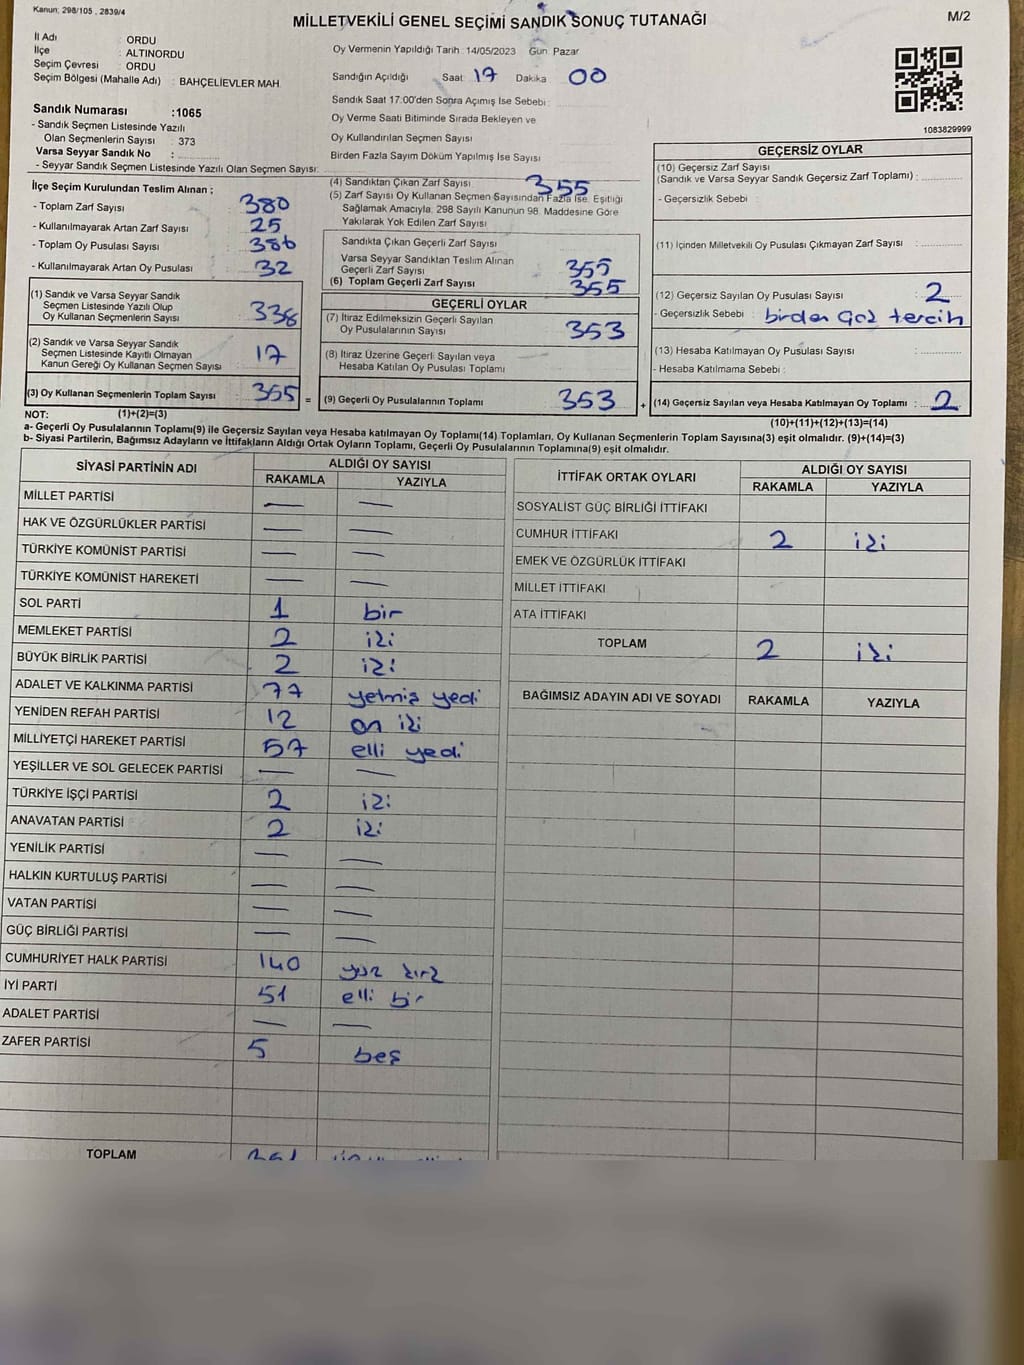 Kanun: 298/105 , 2839/4
MİLLETVEKİLİ GENEL SEÇİMİ SANDIK SONUÇ TUTANAĞI
M/2
İl Adı : ORDU
İlçe : ALTINORDU
Seçim Çevresi : ORDU
Seçim Bölgesi (Mahalle Adı) : BAHÇELİEVLER MAH.
Oy Vermenin Yapıldığı Tarih : 14/05/2023 Gün: Pazar
Sandığın Açıldığı Saat 17 Dakika 00
Sandık Saat 17:00'den Sonra Açımış İse Sebebi :
Oy Verme Saati Bitiminde Sırada Bekleyen ve
Oy Kullandırılan Seçmen Sayısı
Birden Fazla Sayım Döküm Yapılmış İse Sayısı
1083829999
Sandık Numarası :1065
- Sandık Seçmen Listesinde Yazılı
Olan Seçmenlerin Sayısı : 373
Varsa Seyyar Sandık No :
- Seyyar Sandık Seçmen Listesinde Yazılı Olan Seçmen Sayısı:
İlçe Seçim Kurulundan Teslim Alınan ;
- Toplam Zarf Sayısı : 380
- Kullanılmayarak Artan Zarf Sayısı : 25
- Toplam Oy Pusulası Sayısı : 386
- Kullanılmayarak Artan Oy Pusulası : 32
(1) Sandık ve Varsa Seyyar Sandık
Seçmen Listesinde Yazılı Olup
Oy Kullanan Seçmenlerin Sayısı : 338
(2) Sandık ve Varsa Seyyar Sandık
Seçmen Listesinde Kayıtlı Olmayan
Kanun Gereği Oy Kullanan Seçmen Sayısı : 17
(3) Oy Kullanan Seçmenlerin Toplam Sayısı : 355 =
(4) Sandıktan Çıkan Zarf Sayısı 355
(5) Zarf Sayısı Oy Kullanan Seçmen Sayısından Fazla İse, Eşitliği
Sağlamak Amacıyla, 298 Sayılı Kanunun 98. Maddesine Göre
Yakılarak Yok Edilen Zarf Sayısı
Sandıkta Çıkan Geçerli Zarf Sayısı
Varsa Seyyar Sandıktan Teslim Alınan
Geçerli Zarf Sayısı 355
(6) Toplam Geçerli Zarf Sayısı 355
GEÇERLİ OYLAR
(7) İtiraz Edilmeksizin Geçerli Sayılan
Oy Pusulalarının Sayısı : 353
(8) İtiraz Üzerine Geçerli Sayılan veya
Hesaba Katılan Oy Pusulası Toplamı
(9) Geçerli Oy Pusulalarının Toplamı 353 +
GEÇERSİZ OYLAR
(10) Geçersiz Zarf Sayısı
(Sandık ve Varsa Seyyar Sandık Geçersiz Zarf Toplamı) :
- Geçersizlik Sebebi :
(11) İçinden Milletvekili Oy Pusulası Çıkmayan Zarf Sayısı :
(12) Geçersiz Sayılan Oy Pusulası Sayısı : 2
- Geçersizlik Sebebi : birden çok tercih
(13) Hesaba Katılmayan Oy Pusulası Sayısı :
- Hesaba Katılmama Sebebi :
(14) Geçersiz Sayılan veya Hesaba Katılmayan Oy Toplamı : 2
NOT: (1)+(2)=(3)
(10)+(11)+(12)+(13)=(14)
a- Geçerli Oy Pusulasının Toplamı(9) ile Geçersiz Sayılan veya Hesaba katılmayan Oy Toplamı(14) Toplamları, Oy Kullanan Seçmenlerin Toplam Sayısına(3) eşit olmalıdır. (9)+(14)=(3)
b- Siyasi Partilerin, Bağımsız Adayların ve İttifakların Aldığı Ortak Oyların Toplamı, Geçerli Oy Pusulalarının Toplamına(9) eşit olmalıdır.
SİYASİ PARTİNİN ADI ALDIĞI OY SAYISI
RAKAMLA YAZIYLA
MİLLET PARTİSİ — —
HAK VE ÖZGÜRLÜKLER PARTİSİ — —
TÜRKİYE KOMÜNİST PARTİSİ — —
TÜRKİYE KOMÜNİST HAREKETİ — —
SOL PARTİ 1 bir
MEMLEKET PARTİSİ 2 iki
BÜYÜK BİRLİK PARTİSİ 2 iki
ADALET VE KALKINMA PARTİSİ 77 yetmiş yedi
YENİDEN REFAH PARTİSİ 12 on iki
MİLLİYETÇİ HAREKET PARTİSİ 57 elli yedi
YEŞİLLER VE SOL GELECEK PARTİSİ — —
TÜRKİYE İŞÇİ PARTİSİ 2 iki
ANAVATAN PARTİSİ 2 iki
YENİLİK PARTİSİ — —
HALKIN KURTULUŞ PARTİSİ — —
VATAN PARTİSİ — —
GÜÇ BİRLİĞİ PARTİSİ — —
CUMHURİYET HALK PARTİSİ 140 yüz kırk
İYİ PARTİ 51 elli bir
ADALET PARTİSİ — —
ZAFER PARTİSİ 5 beş
TOPLAM
İTTİFAK ORTAK OYLARI ALDIĞI OY SAYISI
RAKAMLA YAZIYLA
SOSYALİST GÜÇ BİRLİĞİ İTTİFAKI
CUMHUR İTTİFAKI 2 iki
EMEK VE ÖZGÜRLÜK İTTİFAKI
MİLLET İTTİFAKI
ATA İTTİFAKI
TOPLAM 2 iki
BAĞIMSIZ ADAYIN ADI VE SOYADI RAKAMLA YAZIYLA